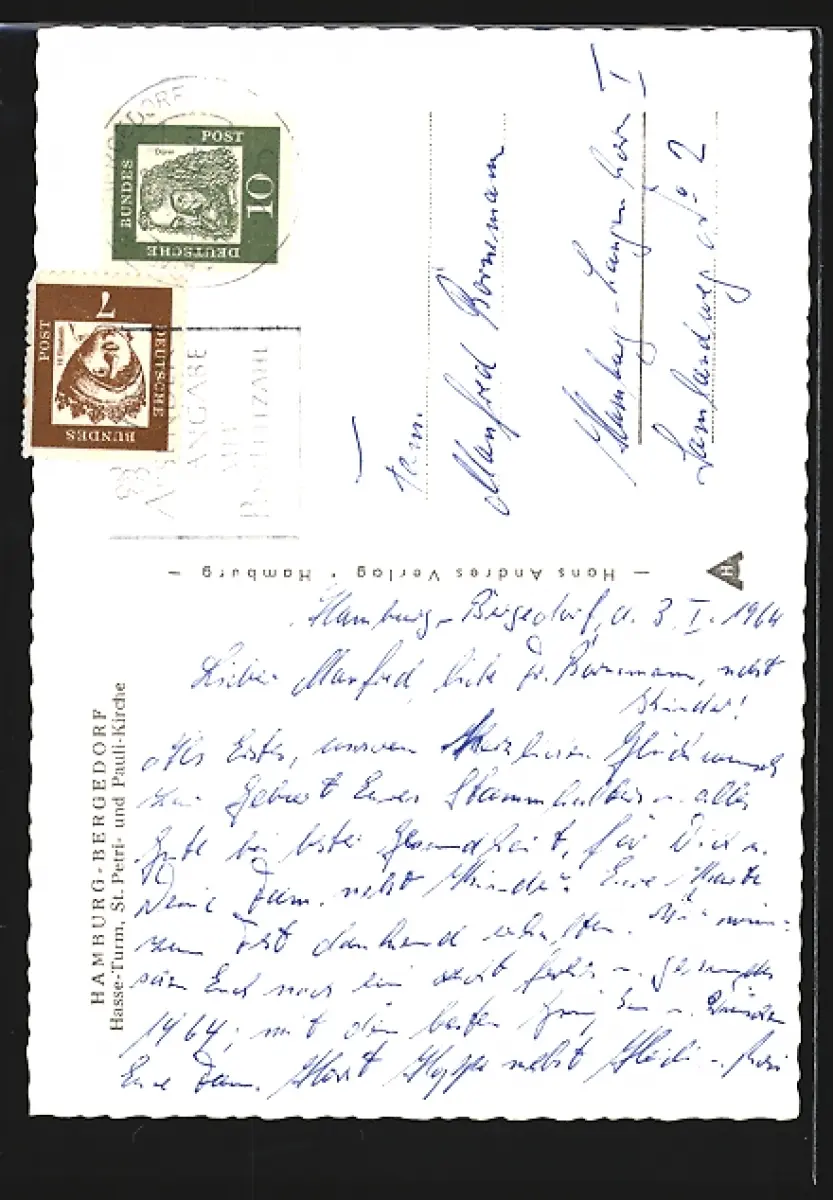 HAMBURG-BERGEDORF
Hasse-Turm, St. Petri- und Pauli-Kirche
Hamburg-Bergedorf, d. 3. I. 1964
Lieber Manfred, liebe Fr. Börnemann, nebst
Kinder!
Als Erstes, unseren herzlichen Glückwunsch
zur Geburt Eures Stammhalters u. alles
Gute bei bester Gesundheit, für Dich u.
Deine Fam. nebst Kinder. Eure Karte
dankend erhalten. Wir wün-
schen Euch noch ein recht frohes u. gesundes
1964, mit den besten Grüßen u. Wünschen
Eure Fam. Horst nebst
– Hans Andres Verlag · Hamburg –
H
Fam.
Manfred Börnemann
Hamburg-Langenhorn I
Nr. 2
DEUTSCHE
BUNDES
POST
10
Dürer
DEUTSCHE
BUNDES
POST
7
Hl. Elisabeth
BERGEDORF
ANGABE
MIT
POSTLEITZAHL